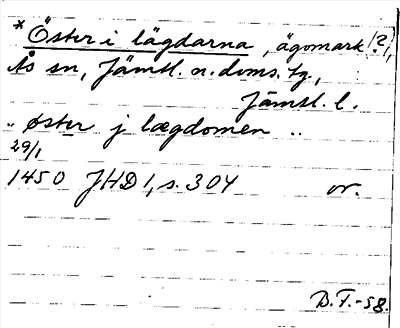 * Öster i lägdarna, ägomark (?),
Ås sn, Jämtl. n. doms. tg.,
Jämtl. l.
.. øster j lægdomen ..
29/1
1450 JHD 1, s. 304 or.
B.F.-58.